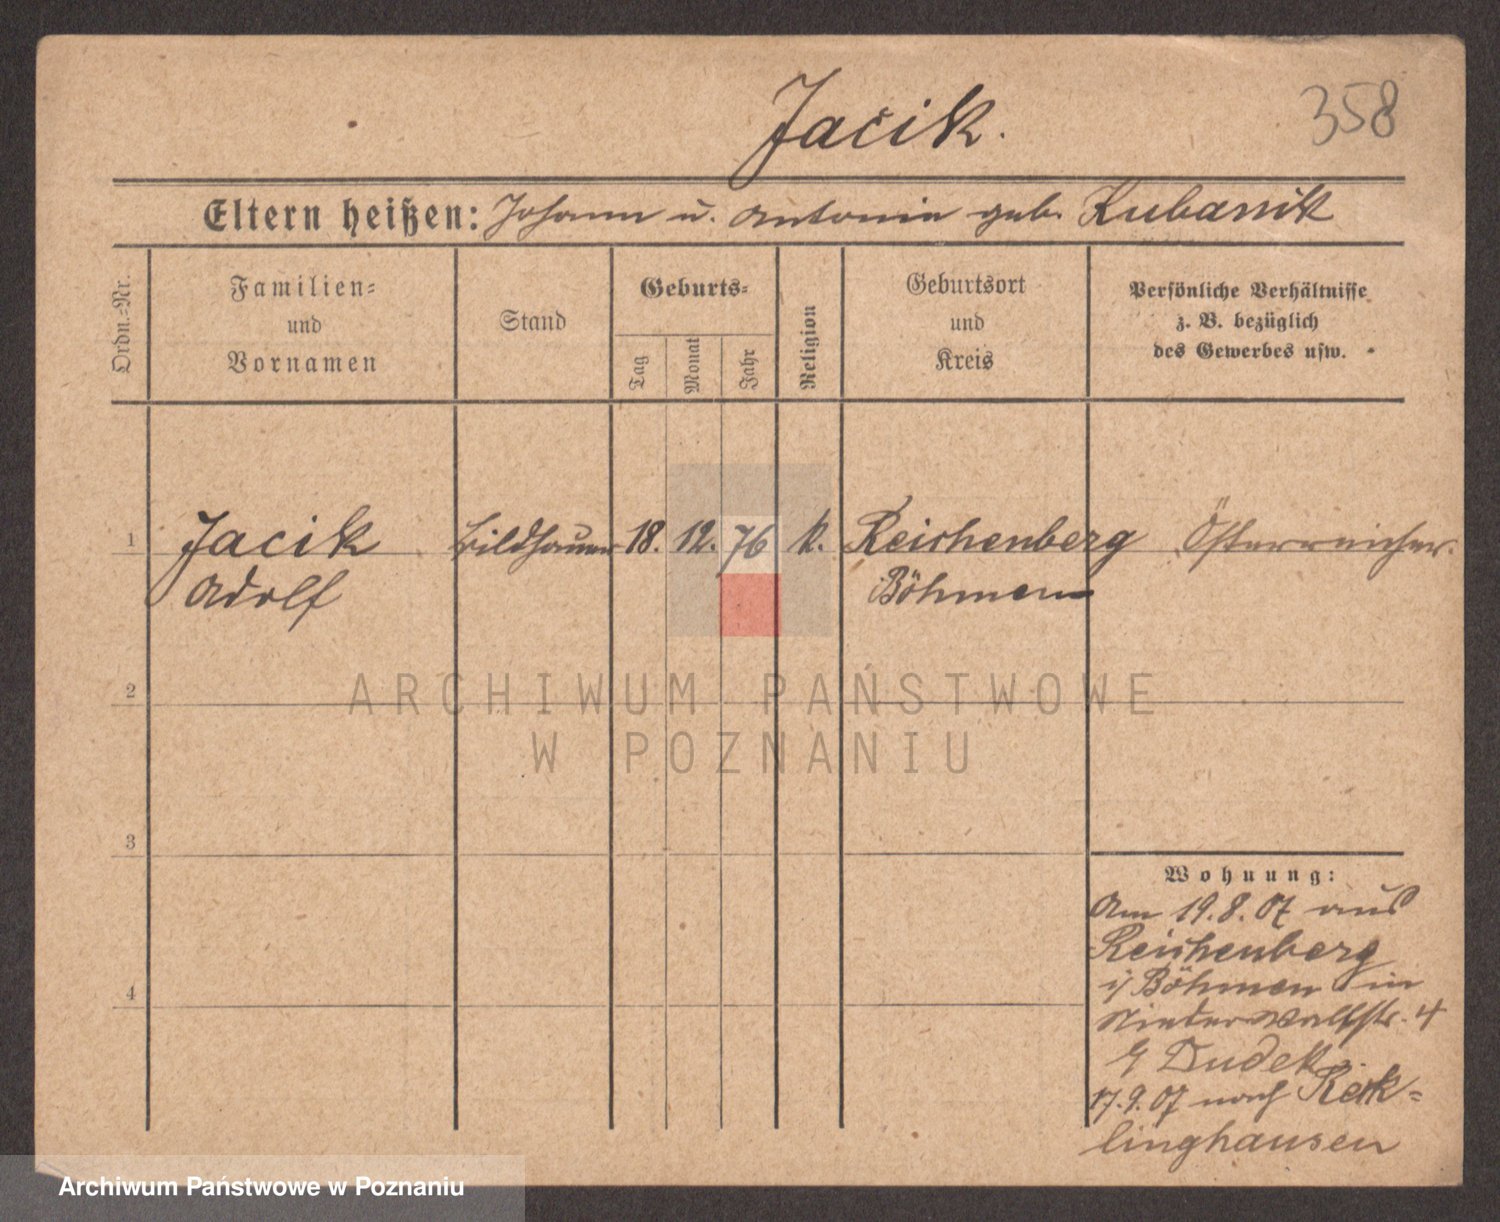 358
Jačik.
Eltern heißen: Johann u. Antonie geb. Kubanik
Ordn.-Nr.
Familien-
und
Vornamen
Stand
Geburts-
Tag
Monat
Jahr
Religion
Geburtsort
und
Kreis
Persönliche Verhältnisse
z. B. bezüglich
des Gewerbes usw.
1 Jacik Bildhauer 18. 12. 76 k. Reichenberg Österreicher.
Adolf Böhmen
2
ARCHIWUM PAŃSTWOWE
W POZNANIU
3
Wohnung:
Am 19.8.07 aus
Reichenberg
i/Böhmen in
4
Niederwallstr. 4
Dudek.
17.9.07 nach Reck-
linghausen
Archiwum Państwowe w Poznaniu